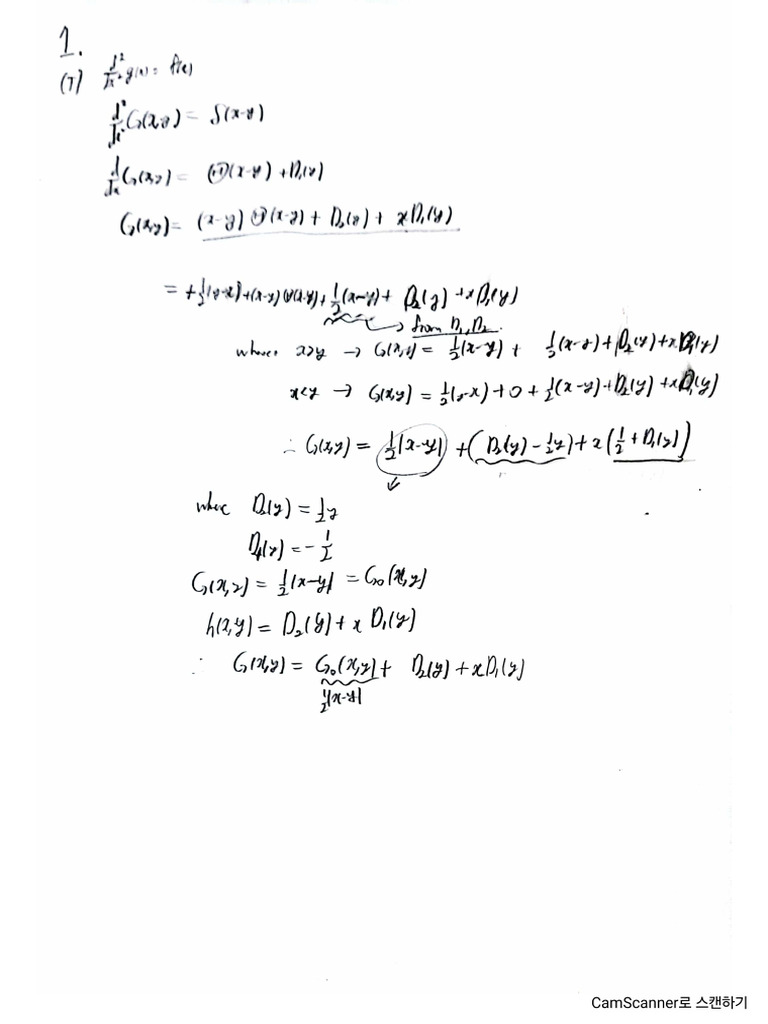 1.
(7) d²/dx² g(x) = f(x)
d²/dx² G(x,y) = δ(x-y)
d/dx G(x,y) = Θ(x-y) + D₁(y)
G(x,y) = (x-y) Θ(x-y) + D₂(y) + x D₁(y)
= + ½(y-x) + (x-y) Θ(x-y) + ½(x-y) + D₂(y) + x D₁(y)
→ from D₁, D₂.
where x>y → G(x,y) = ½(x-y) + ½(x-y) + D₂(y) + x D₁(y)
x<y → G(x,y) = ½(y-x) + 0 + ½(x-y) + D₂(y) + x D₁(y)
∴ G(x,y) = ½|x-y| + (D₂(y) - ½y) + x(½ + D₁(y))
where D₂(y) = ½y
D₁(y) = -½
G(x,y) = ½|x-y| = G₀(x,y)
h(x,y) = D₂(y) + x D₁(y)
∴ G(x,y) = G₀(x,y) + D₂(y) + x D₁(y)
½|x-y|
CamScanner로 스캔하기